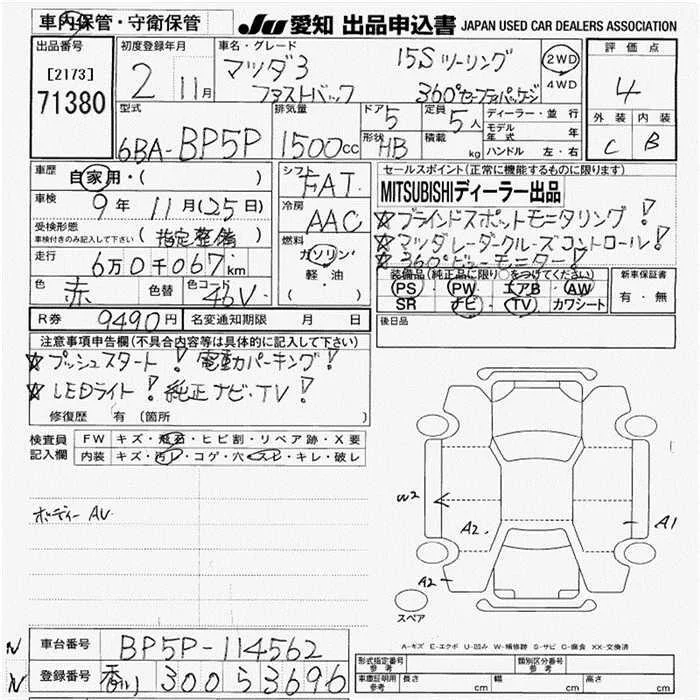 車内保管・守衛保管
JU 愛知 出品申込書 JAPAN USED CAR DEALERS ASSOCIATION
出品番号 初度登録年月 車名・グレード 評価点
[2173] 71380 2 11月 マツダ3 15S ツーリング 2WD 4
ファストバック 360°セーフティパッケージ 4WD
外装 内装
C B
型式 排気量 ドア 5 定員 5人 ディーラー・並行
6BA-BP5P 1500cc 形状 HB 積載 kg モデル年式 年
ハンドル 左・右
車歴 自家用・( ) シフト FAT セールスポイント(正常に機能するものに限ります)
車検 9年 11月(25日) 冷房 AAC MITSUBISHIディーラー出品
受検形態 車検付きのみ記入して下さい (指定整備) ☆ブラインドスポットモニタリング!
☆マツダレーダークルーズコントロール!
☆360°ビューモニター!
走行 6万0千067km 燃料 ガソリン 軽油 ( )
色 赤 色替 色コード 46V
装備品(純正品に限り○をつけてください) 新車保証書
PS・PW・エアB・AW 有・無
SR ナビ・TV カワシート
R券 9490円 名変通知期限 月 日 後日品
注意事項申告欄(不具合内容等は具体的に記入して下さい)
☆プッシュスタート! 電動パーキング!
☆LEDライト! 純正ナビ・TV!
修復歴 有(箇所
検査員記入欄 FW キズ・飛石・ヒビ割・リペア跡・X要
内装 キズ・汚レ・コゲ・穴・スレ・キレ・破レ
ボディー AU
W2
A2
A1
A2
スペア
A-キズ E-エクボ U-凹み W-補修跡 S-サビ C-腐食 XX-交換済
車台番号 BP5P-114562
登録番号 香川 300 5 3696
形式指定番号 参考 類別区分番号 参考
車庫証明用 参考 長さ cm 幅 cm 高さ cm